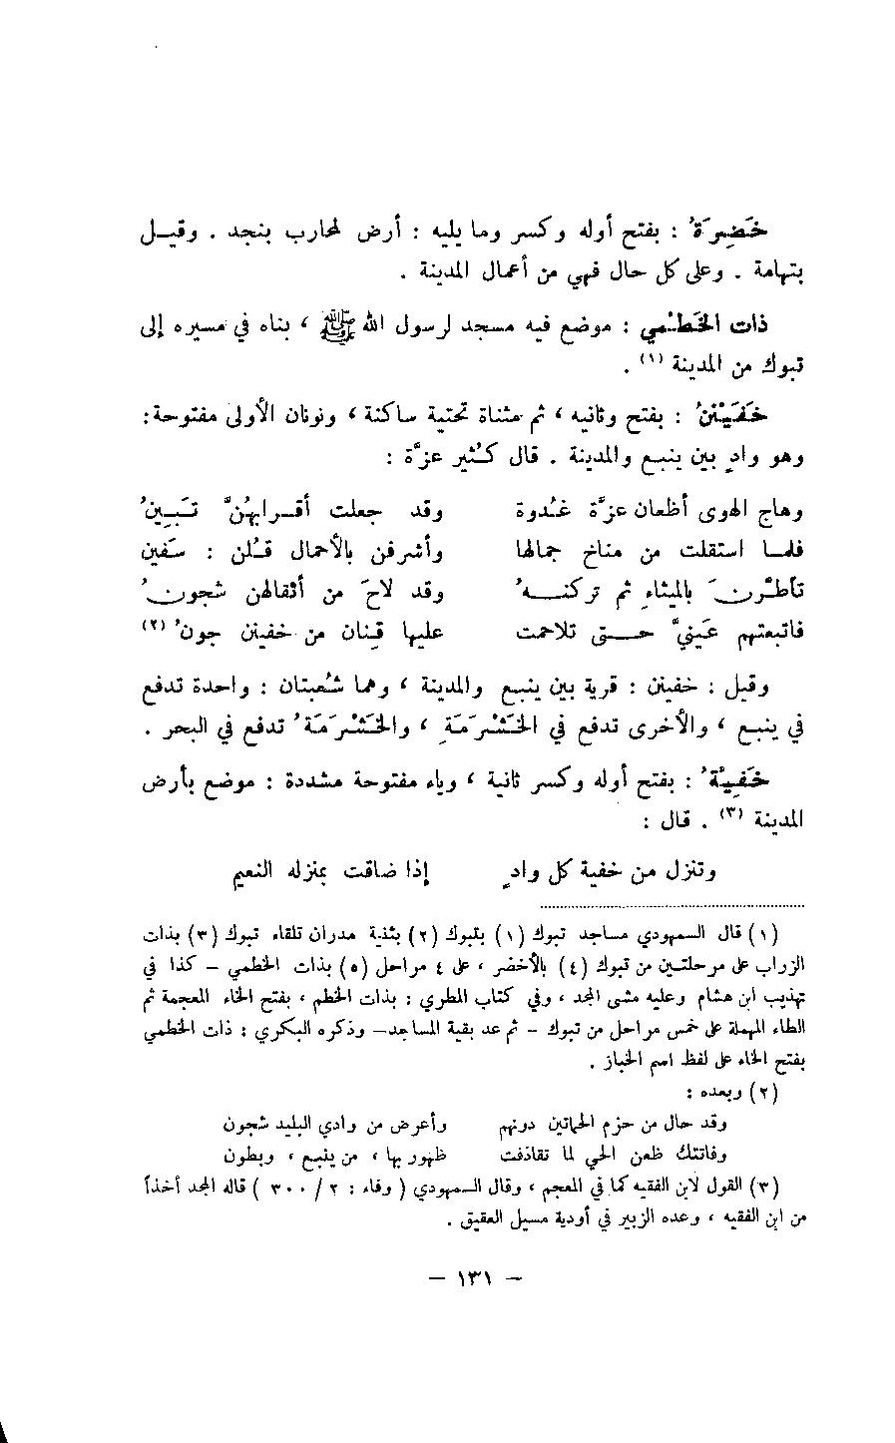 خَضِرَةُ : بفتح أوله وكسر وما يليه : أرض لمحارب بنجد . وقيـل
بتهامة . وعلى كل حال فهي من أعمال المدينة .
ذات الخَطْمي : موضع فيه مسجد لرسول الله ﷺ ، بناه في مسيره إلى
تبوك من المدينة (١) .
خَفَيْنَنُ : بفتح وثانيه ، ثم مثناة تحتية ساكنة ، ونونان الأولى مفتوحة:
وهو وادٍ بين ينبع والمدينة . قال كُثير عزَّة :
وهاج الهوى أظعان عزَّة غُدوة وقد جعلت أقـرابهُنَّ تَبِينُ
فلمـا استقلت من مناخ جمالها وأشرفن بالأحمال قُلن : سَفين
تأطَّرنَ بالميثاءِ ثم تركنـهُ وقد لاحَ من أثقالهن شجونُ
فاتبعتهم عَينيَّ حـتى تلاحمت عليها قِنان من خفينن جونُ (٢)
وقيل : خفينن : قرية بين ينبع والمدينة ، وهما شُعبتان : واحدة تدفع
في ينبع ، والأخرى تدفع في الخَشْرَمَةِ ، والخَشْرَمَةُ تدفع في البحر .
خَفِيَّةُ : بفتح أوله وكسر ثانية ، وياء مفتوحة مشددة : موضع بأرض
المدينة (٣) . قال :
وتنزل من خفية كل وادٍ إذا ضاقت بمنزله النعيم
(١) قال السمهودي مساجد تبوك (١) بتبوك (٢) بثنية مدران تلقاء تبوك (٣) بذات
الزراب على مرحلتـين من تبوك (٤) بالأخضر ، على ٤ مراحل (٥) بذات الخطمي – كذا في
تهذيب ابن هشام وعليه مشى المجد ، وفي كتاب المطري : بذات الخطم ، بفتح الخاء المعجمة ثم
الطاء المهملة على خمس مراحل من تبوك – ثم عد بقية المساجد– وذكره البكري : ذات الخطمي
بفتح الخاء على لفظ اسم الخباز .
(٢) وبعده :
وقد حال من حزم الحماتين دونهم وأعرض من وادي البليد شجون
وفاتتك ظعن الحي لما تقاذفت ظهور بها ، من ينبع ، وبطون
(٣) القول لابن الفقيه كما في المعجم ، وقال السمهودي ( وفاء : ٢ / ٣٠٠ ) قاله المجد أخذاً
من ابن الفقيه ، وعده الزبير في أودية مسيل العقيق .
– ١٣١ –